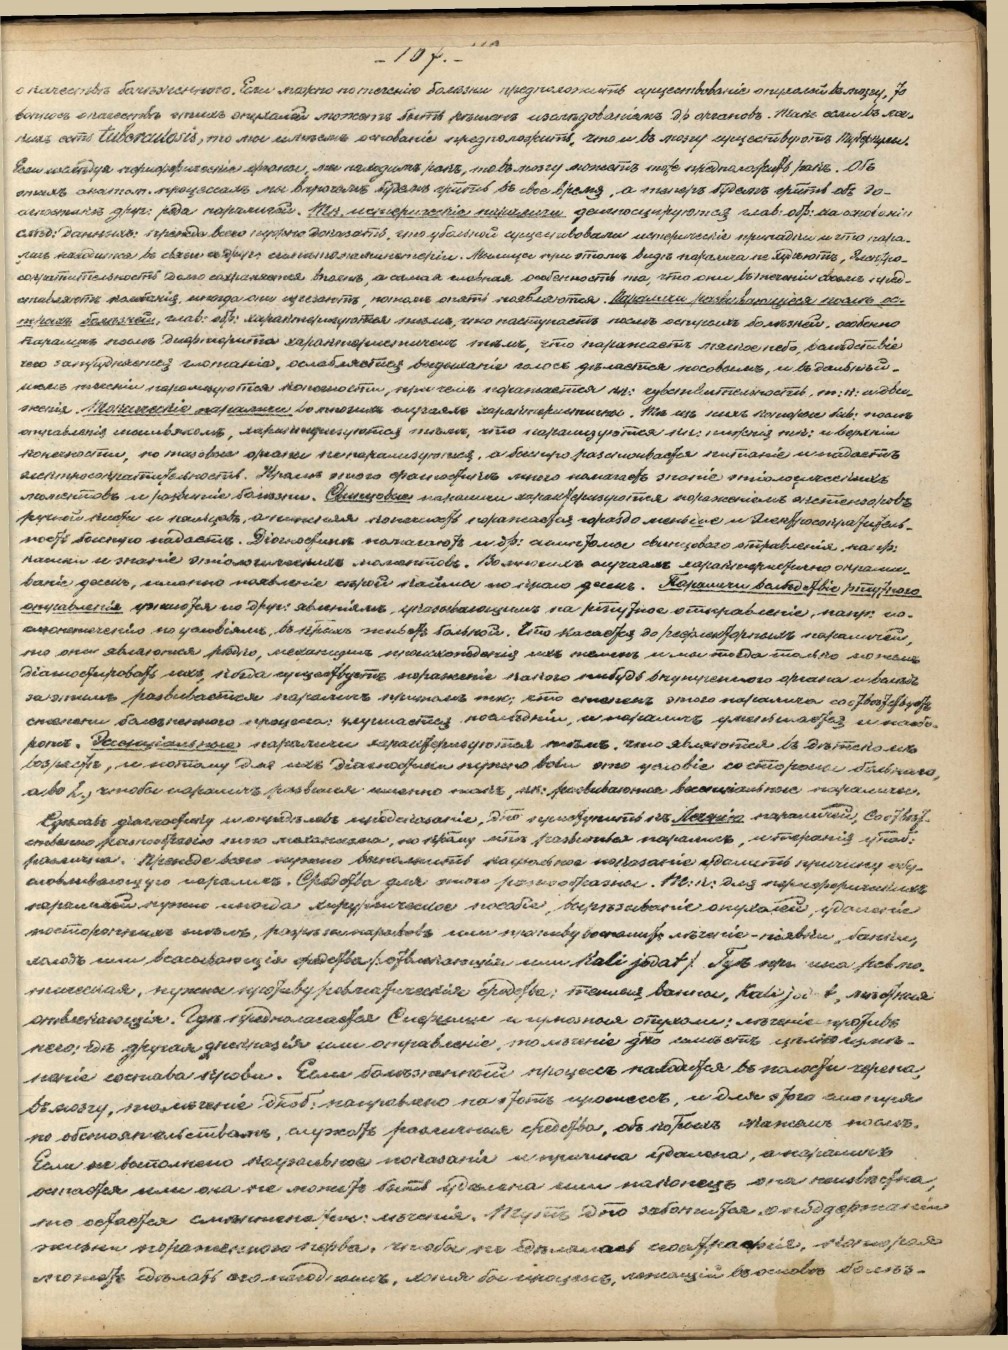 - 107. -
о качествѣ болѣзненного. Если можно по теченію болѣзни предположить существованіе опухолей въ мозгу, то
вопросъ о качествѣ этихъ опухолей можетъ быть рѣшенъ изслѣдованіемъ др. органовъ. Такъ если въ лег-
кихъ есть tuberculosis, то мы имѣемъ основаніе предположить, что и въ мозгу существуютъ туберкулы.
Если изслѣдуя периферическіе органы, мы находимъ ракъ, то въ мозгу можетъ тоже предполагать ракъ. Объ
этихъ анатом. процессахъ мы впрочемъ будемъ говорить въ свое время, а теперь будемъ говорить объ ді-
агностикѣ друг: рода параличей. Тк. истерическіе параличи діагносцируются глав: обр: на основаніи
слѣд: данныхъ: прежде всего нужно доказать, что у больной существовали истерическіе припадки и что пара-
личъ находится въ связи съ друг. симптомами истеріи. Мышцы при этомъ видѣ паралича не худѣютъ, электро-
сократительность долго сохраняется въ нихъ, а самая главная особенность та, что они въ теченіи своемъ пред-
ставляютъ колебанія, иногда они исчезаютъ, потомъ опять появляются. Параличи развивающіеся послѣ ос-
трыхъ болѣзней, глав: обр: характеризуются тѣмъ, что наступаютъ послѣ острыхъ болѣзней. особенно
параличъ послѣ дифтерита характеристиченъ тѣмъ, что поражаетъ мягкое небо, вслѣдствіе
чего затрудняется глотаніе, ослабляется выдыханіе голосъ дѣлается носовымъ, и въ дальнѣй-
шемъ теченіи парализуются конечности, при чемъ поражается кк: чувствительность, т: к: и дви-
женія. Токсическіе параличи во многихъ случаяхъ характеристичны. Тѣ изъ нихъ которые быв: послѣ
отравленія мышьякомъ, характеризуются тѣмъ, что парализуются кк: нижнія тк: и верхнія
конечности, но тазовые органы не парализуются, а быстро разстраивается питаніе и падаетъ
электросократительность. Кромѣ этого діагностикѣ много помогаетъ знаніе этіологическихъ
моментовъ и развитіе болѣзни. Свинцовые параличи характеризуются пораженіемъ экстензоровъ
ручной кисти и пальцевъ, а нижняя конечность поражается гораздо меньше и электросократитель-
ность быстро падаетъ. Діагностикѣ помогаютъ и др: симптомы свинцового отравленія, напр:
колики и знаніе этіологическихъ моментовъ. Во многихъ случаяхъ характеристично окраши-
ваніе десенъ, именно появленіе сѣрой каймы по краю десенъ. Параличи вслѣдствіе ртутного
отравленія узнаются по друг: явленіямъ, указывающимъ на ртутное отравленіе, напр: по
слюнотеченію по условіямъ, въ кторыхъ живетъ больной. Что касается до рефлекторныхъ параличей,
то они являются рѣдко, механизмъ происхожденія ихъ теменъ и мы тогда только можемъ
діагносцировать ихъ, когда существуетъ пораженіе какого нибудь внутренняго органа и вслѣдъ
за этимъ развивается параличъ притомъ тк: что степень этого паралича соотвѣтствуетъ
степени болѣзненного процесса: улучшается послѣдній, и параличъ уменьшается и наобо-
ротъ. Эссенціальные параличи характеризуются тѣмъ, что являются въ дѣтскомъ
возрастѣ, и потому для ихъ діагностики нужно вопі это условіе со стороны больного,
а во 2., чтобы параличъ развился именно такъ, кк: развиваются эссенціальные параличи.
Сдѣлавъ діагностику и опредѣливъ предсказаніе, дно приступить къ Леченію параличей, Соотвѣт-
ственно разнообразію того механизма, по крому мтъ развиться параличъ, и терапія д. б.
различна. Прежде всего нужно выполнить каузальное показаніе удалить причину обу-
словливающую параличъ. Средства для этого разнообразны. Т: к: для периферическихъ
параличей нужно иногда хирургическое пособіе, вырѣзываніе опухолей, удаленіе
постороннихъ тѣлъ, разрѣзы нарывовъ или противувоспалит. лѣченіе - піявки, банки,
холодъ или всасывающія средства (отвлекающія или Kali jodat.). Гдѣ причина ревма-
тическая, нужны противуревматическія средства: теплыя ванны, Kali jodat, мѣстныя
отвлекающія. Гдѣ предполагается Сифилисъ и гумозныя опухоли; лѣченіе противъ
него; гдѣ другая дискразія или отравленіе, то лѣченіе дно имѣть цѣлью измѣ-
неніе состава крови. Если болѣзненный процессъ находится въ полости черепа,
въ мозгу, то лѣченіе д. б: направлено на этотъ процессъ, и для этого смотря
по обстоятельствамъ, служатъ различныя средства, объ кторыхъ скажемъ послѣ.
Если же выполнено каузальное показаніе и причина удалена, а параличъ
остается или она не можетъ быть удалена или наконецъ она неизвѣстна,
то остается симптоматич: лѣченіе. Тутъ дно заботиться о поддержаніи
жизни пораженного нерва, чтобы не сдѣлалась его атрофія, которая
можетъ сдѣлать его негоднымъ, хотя бы процессъ, лежащій въ основѣ болѣз-